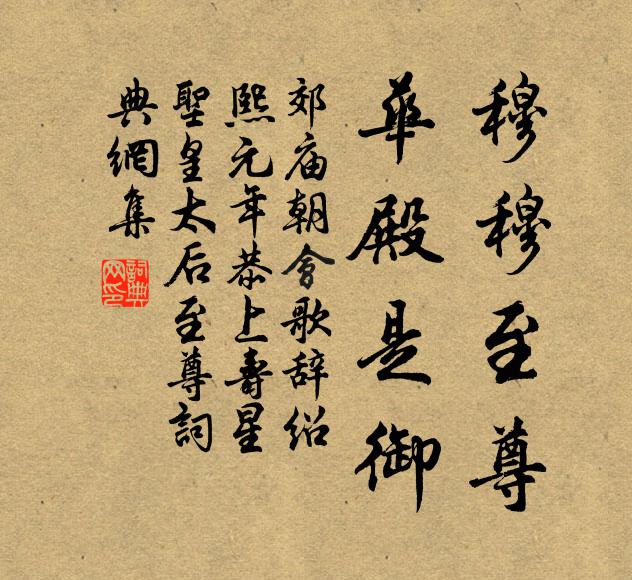 穆穆至尊
華殿是御
郊庙朝会歌辞绍
熙元年恭上壽星
聖皇太后至尊詞
典網集
詞典
网印